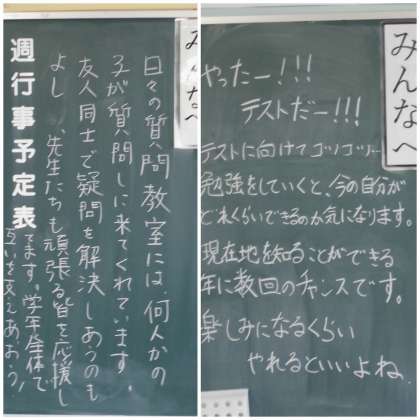 週行事予定表
みんなへ
日々の質問教室には、何人かの
子が質問しに来てくれています。
友人同士で疑問を解決しあうのも
よし、先生たちも頑張る皆を応援し
てます。学年全体で
互いを支えあおう!
みんなへ
やったー!!!
テストだー!!!
テストに向けてコツコツ
勉強をしていくと、今の自分が
どれくらいできるのか気になります。
現在地を知ることができる
年に数回のチャンスです。
楽しみになるくらい
やれるといいよね。